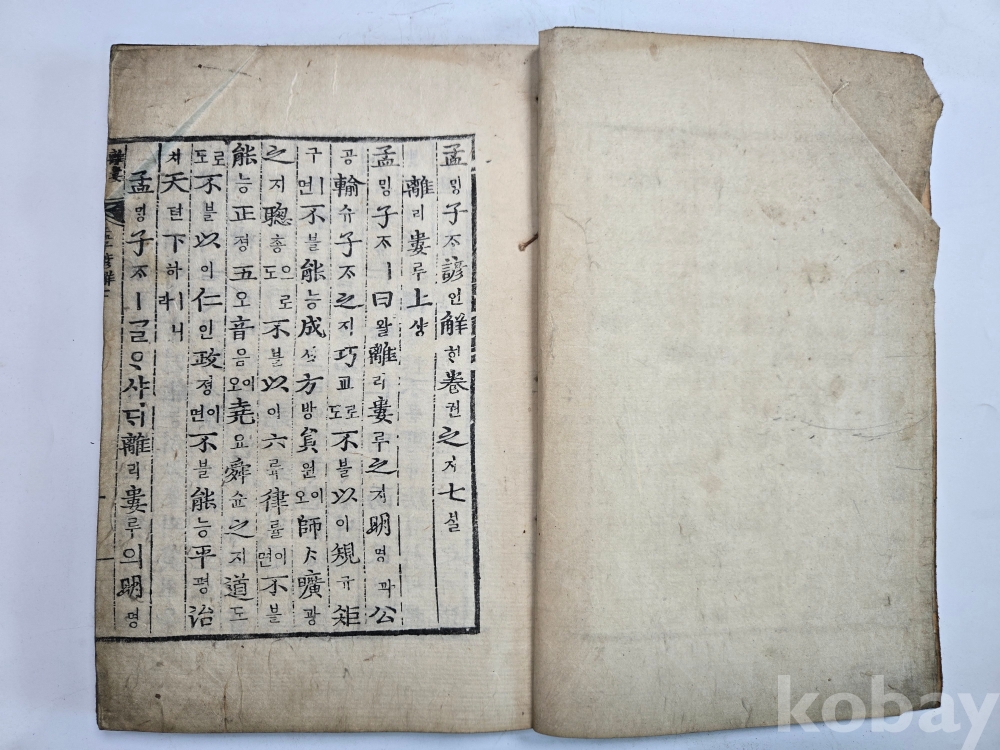 孟ᄆᆡᆼ子ᄌᆞ諺언解ᄒᆡ卷권之지七칠
離리婁루上샹
孟ᄆᆡᆼ子ᄌᆞㅣ曰왈離리婁루之지明명과公
공輸슈子ᄌᆞ之지巧교로도不블以이規규矩
구ㅣ면不블能능成셩方방員원이오師ᄉᆞ曠광
之지聰총으로도不블以이六륙律률이면不블
能능正졍五오音음이오堯요舜슌之지道도
로도不블以이仁인政졍이면不블能능平평治
치天텬下하ㅣ니라
孟ᄆᆡᆼ子ᄌᆞㅣᄀᆞᆯᄋᆞ샤ᄃᆡ離리婁루의明명
kobay